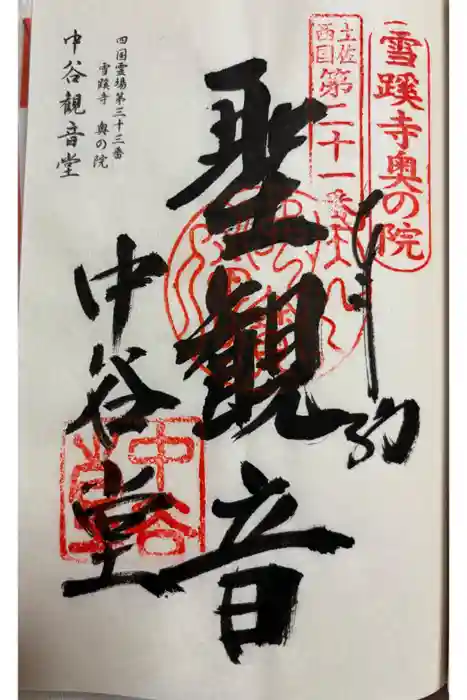 雪蹊寺奥の院
土佐西国
第二十一番
聖観音
中谷堂
中谷堂
四国霊場第三十三番
雪蹊寺 奥の院
中谷観音堂